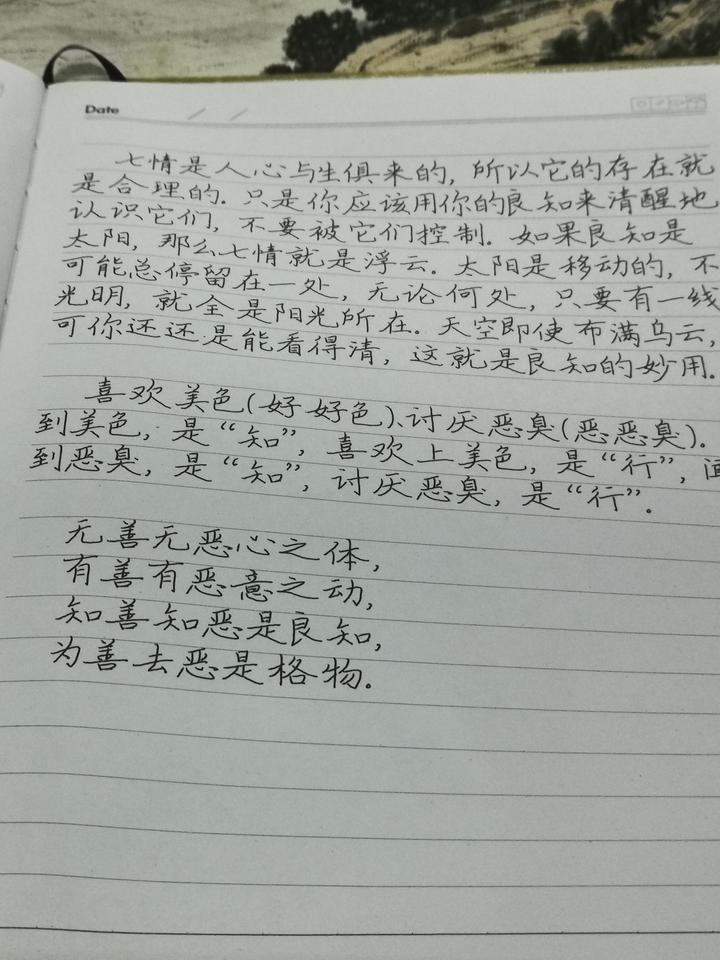 Date
七情是人心与生俱来的, 所以它的存在就
是合理的. 只是你应该用你的良知来清醒地
认识它们, 不要被它们控制. 如果良知是
太阳, 那么七情就是浮云. 太阳是移动的, 不
可能总停留在一处, 无论何处, 只要有一线
光明, 就全是阳光所在. 天空即使布满乌云,
可你还还是能看得清, 这就是良知的妙用.
喜欢美色(好好色)、讨厌恶臭(恶恶臭).
到美色, 是“知”, 喜欢上美色, 是“行”,
到恶臭, 是“知”, 讨厌恶臭, 是“行”.
无善无恶心之体,
有善有恶意之动,
知善知恶是良知,
为善去恶是格物.